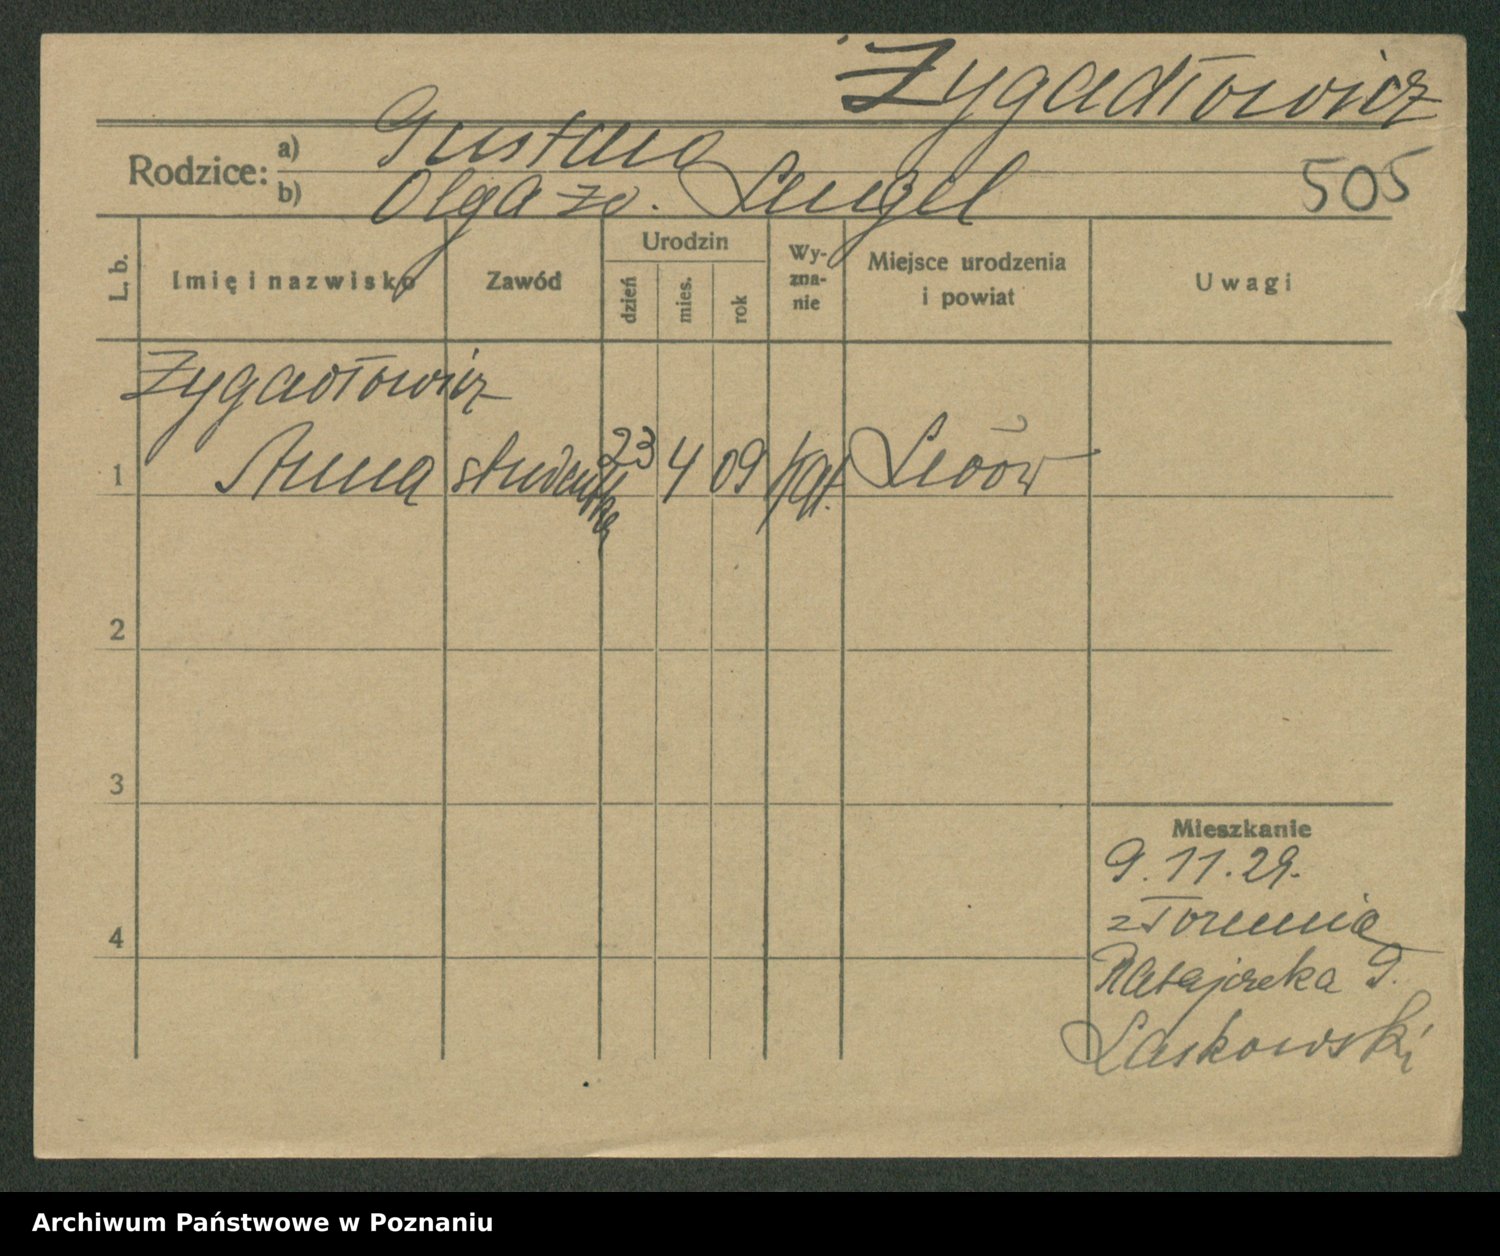 Zygadłowicz
Rodzice:
a) Gustaw
b) Olga zd. Lengel
505
L. b.
Imię i nazwisko
Zawód
Urodzin
dzień
mies.
rok
Wy-
zna-
nie
Miejsce urodzenia
i powiat
Uwagi
Zygadłowicz
1 Anna studentka 23 4 09 kat. Lwów
2
3
4
Mieszkanie
9.11.29.
z Torunia
Ratajczaka 9.
Laskowski
Archiwum Państwowe w Poznaniu